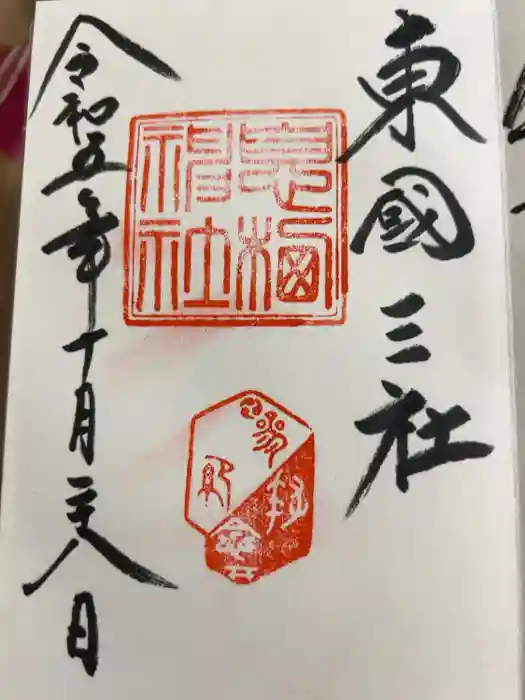 東國三社
息栖神社
参拝
令和五年十月二十八日